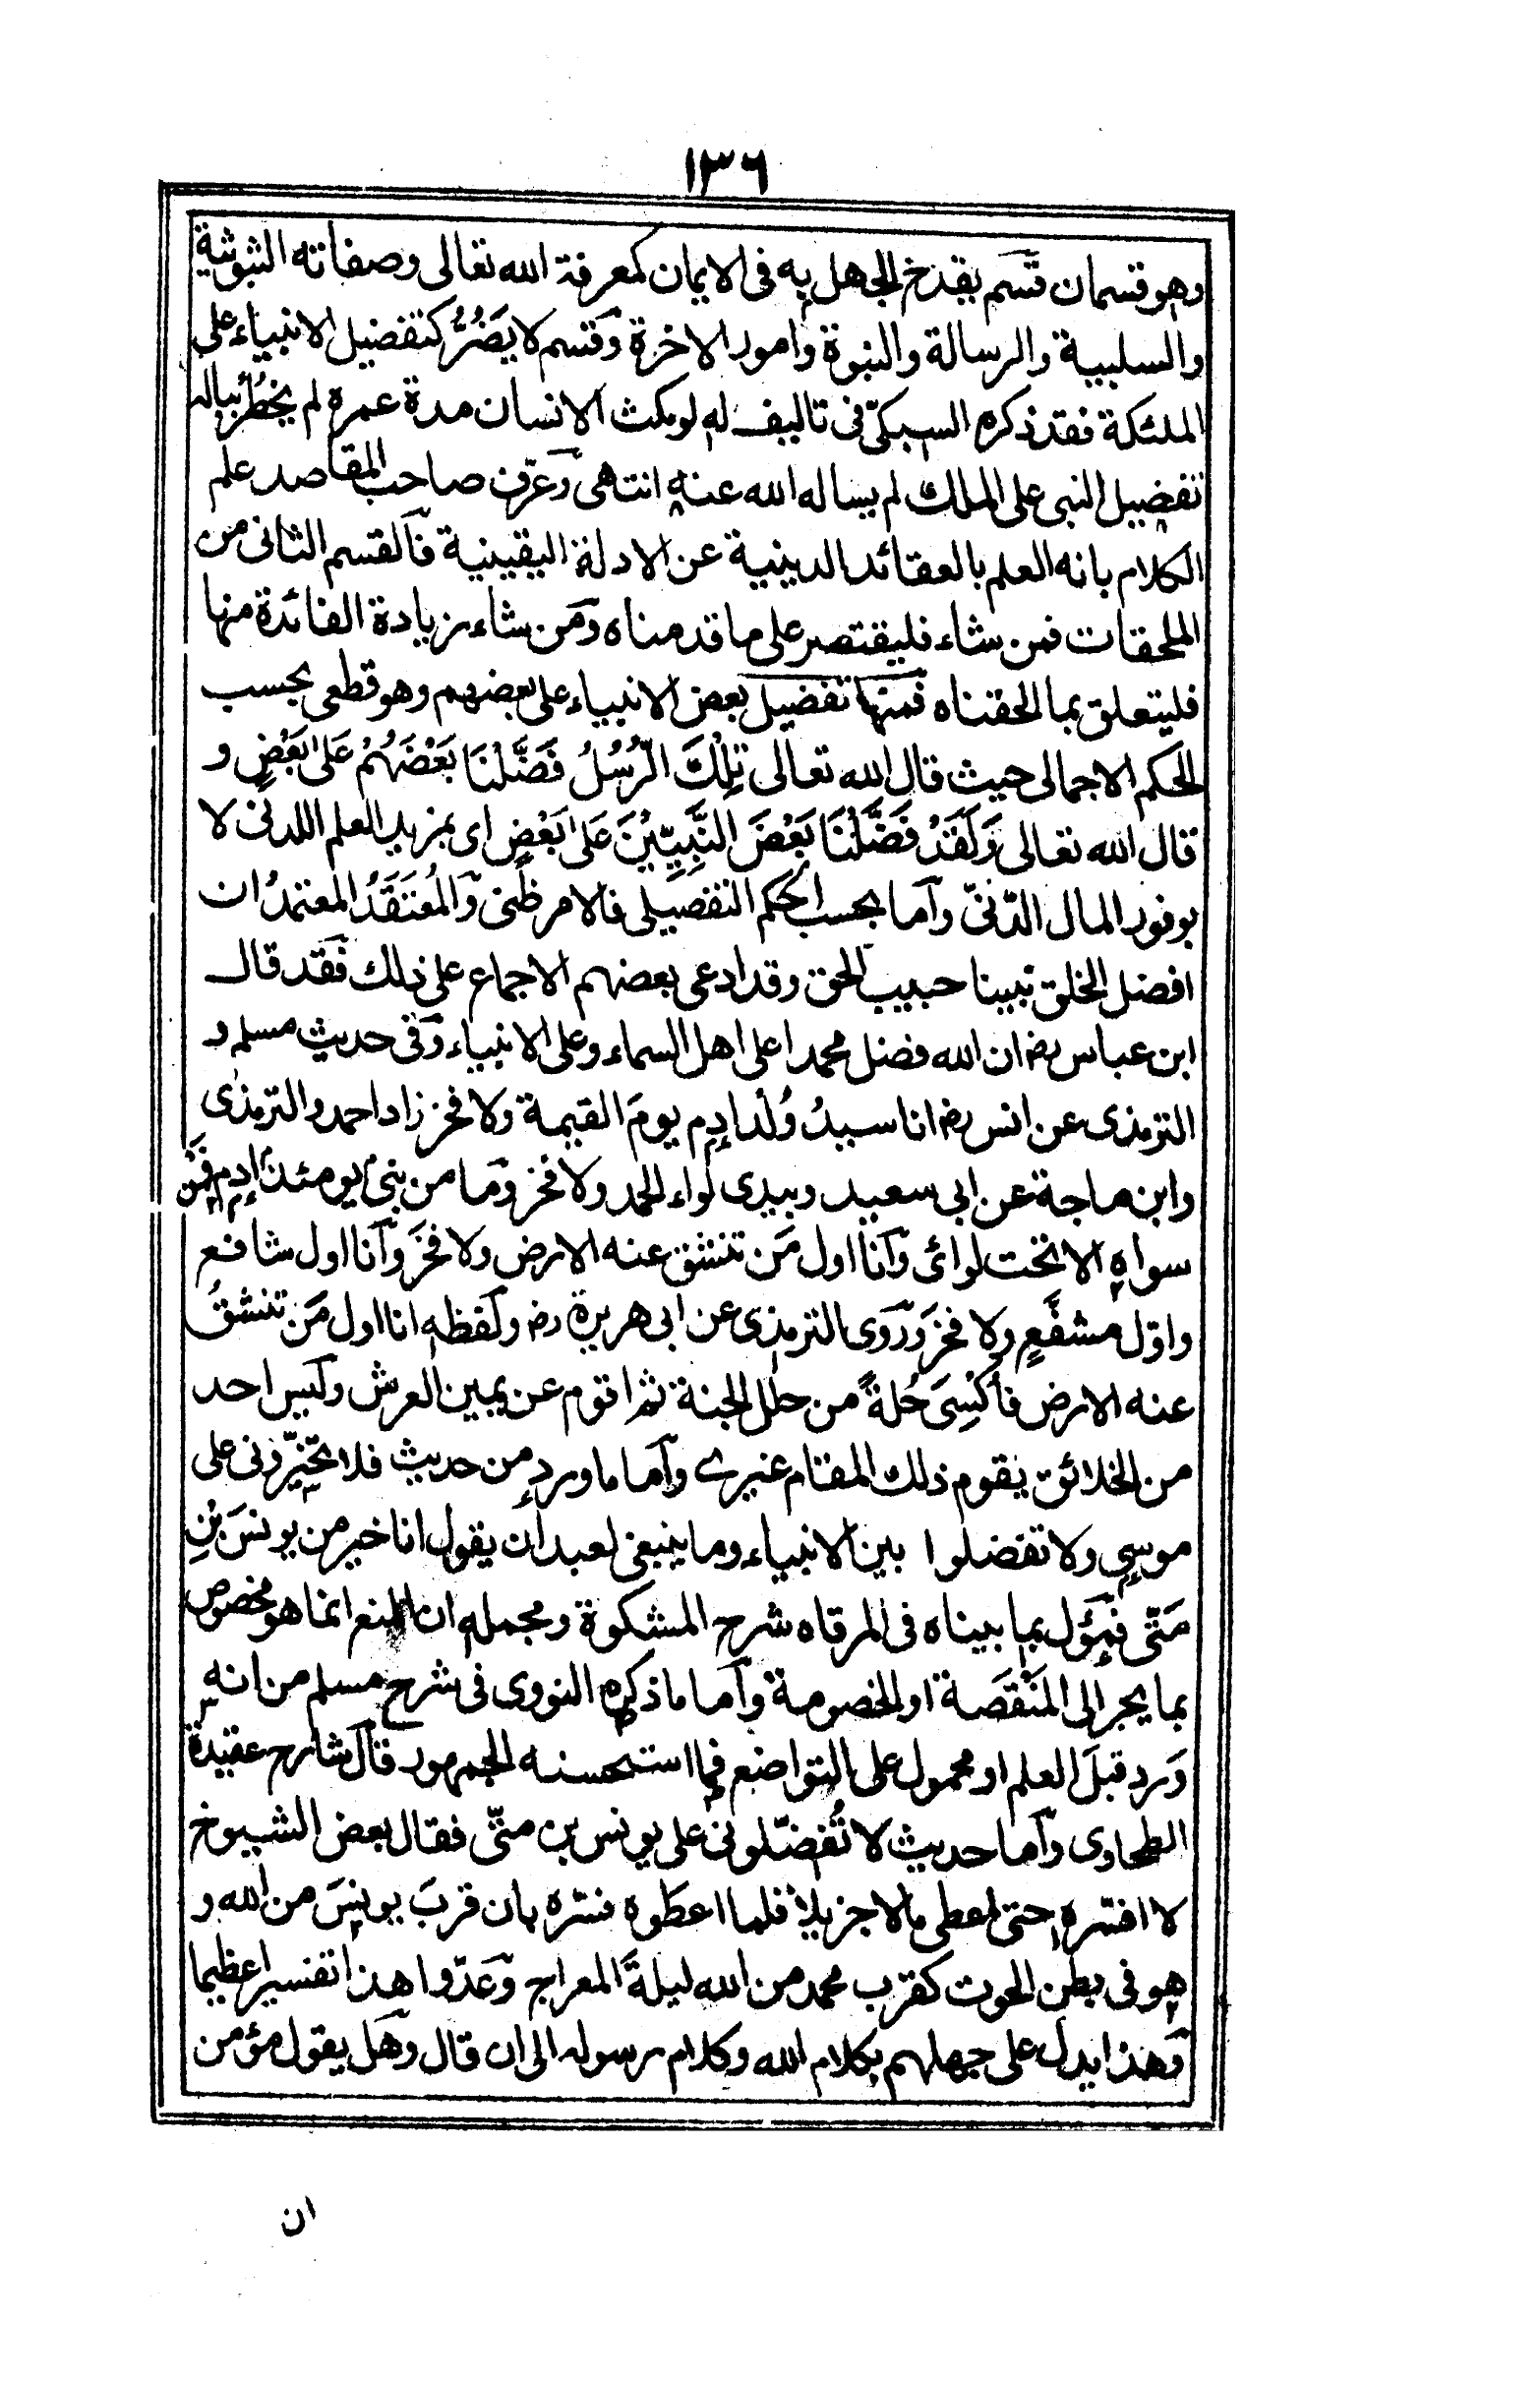 ١٣٦
وهو قسمان قسم يقدح الجهل به فى الايمان كمعرفة الله تعالى وصفاته الثبوتية
والسلبية والرسالة والنبوة وامور الاخرة وقسم لا يَضُرُّ كتفضيل الانبياء على
الملئكة فقد ذكره السبكىّ فى تاليف له لو مكث الانسان مدة عمره لم يخطُر بباله
تفضيل النبى على الملك لم يساله الله عنه انتهى وعرّف صاحب المقاصد علم
الكلام بانه العلم بالعقائد الدينية عن الادلة اليقينية فالقسم الثانى من
الملحقات فمن شاء فليقتصر على ما قدمناه ومن شاء زيادة الفائدة منها
فليتعلق بما الحقناه فمنها تفضيل بعض الانبياء على بعضهم وهو قطعى بحسب
الحكم الاجمالى حيث قال الله تعالى تِلْكَ الرُّسُلُ فَضَّلْنَا بَعْضَهُمْ عَلىٰ بَعْضٍ و
قال الله تعالى وَلَقَدْ فَضَّلْنَا بَعْضَ النَّبِيِّيْنَ عَلىٰ بَعْضٍ اى بمزيد العلم اللدنى لا
بوفور المال الدّنىّ وآما بحسب الحكم التفصيلى فالامر ظنى وَالمُعْتَقَدُ المعتمدُ ان
افضل الخلق نبينا حبيب الحق وقد ادعى بعضهم الاجماع على ذلك فقد قال
ابن عباس رض ان الله فضل محمدا على اهل السماء وعلى الانبياء وفى حديث مسلم و
الترمذى عن انس رض انا سيدُ وُلْدِ ادم يومَ القيمة ولا فخر زاد احمد والترمذى
وابن ماجة عن ابى سعيد وبيدى لواء الحمد ولا فخر وما من نبى يومئذ ادم فَمَن
سواه الا تحت لوائى وآنا اول مَن تنشق عنه الارض ولا فخرَ وآنا اول شافع
واوّل مشفَّعٍ ولا فخرَ ورَوى الترمذى عن ابى هريرة رض ولفظه انا اول مَن تنشقُ
عنه الارض فأُكْسِىَ حُلةً من حلل الجنة ثم اقوم عن يمين العرش وليس احد
من الخلائق يقوم ذلك المقام غيرى وآما ما ورد من حديث فلا تخيّرونى على
موسى ولا تفضلوا بين الانبياء وما ينبغى لعبد ان يقول انا خير من يونسَ بْنِ
مَتّى فمؤل بما بيناه فى المرقاه شرح المشكوة ومجمله ان المنع انما هو مخصوص
بما يجر الى المَنْقَصَة او الخصومة وآما ما ذكره النووى فى شرح مسلم من انه
وَرد قبلَ العلم او محمول على التواضع فما استحسنه الجمهور قال شارح عقيدة
الطحاوى وآما حديث لا تُفضّلونى على يونس بن متّى فقال بعض الشيوخ
لا افسّره حتى اعطى مالا جزيلا فلما اعطوه فسّره بان قربَ يونسَ من الله و
هو فى بطن الحوت كقرب محمد من الله ليلةَ المعراج وعَدّوا هذا تفسيرا عظيما
وهذا يدل على جهلهم بكلام الله وكلام رسوله الى ان قال وهَل يقول مؤمن
ان